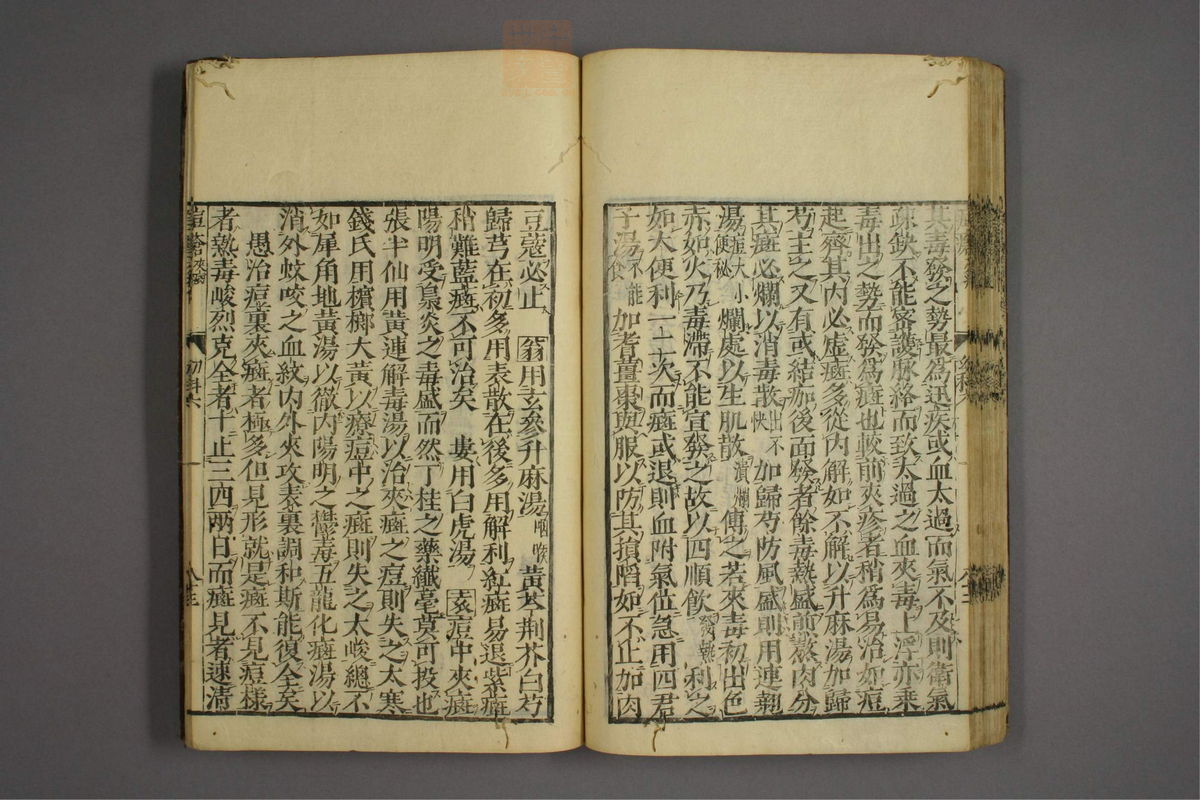 其毒發之勢最為迅疾或血太過而氣不及則衛氣
疎缺不能密護脈絡而致太過之血夾毒上浮亦乘
毒出之勢而發為癍也較前夾疹者稍為易治如痘
起齊其內必虛癍多從內解如不解以升麻湯加歸
芍主之又有或結痂後面發者餘毒熱盛煎熬肉分
其癍必爛以消毒散出不快加歸芍防風盛則用連翹
湯痘大小便秘爛處以生肌散潰爛傅之若夾毒初出色
赤如火乃毒滯不能宣發之故以四順飲利之
如大便利一二次而癍或退則血附氣位急用四君
子湯不能食加耆薑棗與服以防其損陷如不止加肉
豆蔻必止　翁用玄參升麻湯咽喉黃芩荊芥白芍
歸芎在初多用表散在後多用解利紅癍易退紫癍
稍難藍癍不可治矣　婁用白虎湯　袁痘中夾癍
陽明受梟炎之毒盛而然丁桂之藥纖毫莫可投也
張半仙用黃連解毒湯以治夾癍之痘則失之太寒
錢氏用檳榔大黃以療痘中之癍則失之太峻總不
如犀角地黃湯以徹內陽明之毒五龍化癍湯以
消外蚊咬之血紋內外夾攻表裏調和斯能復全矣
愚治痘裏夾癍者極多但見形就是癍不見痘樣
者熱毒峻烈克全者十止三四兩日而癍見者速清
痘瘡　初科六